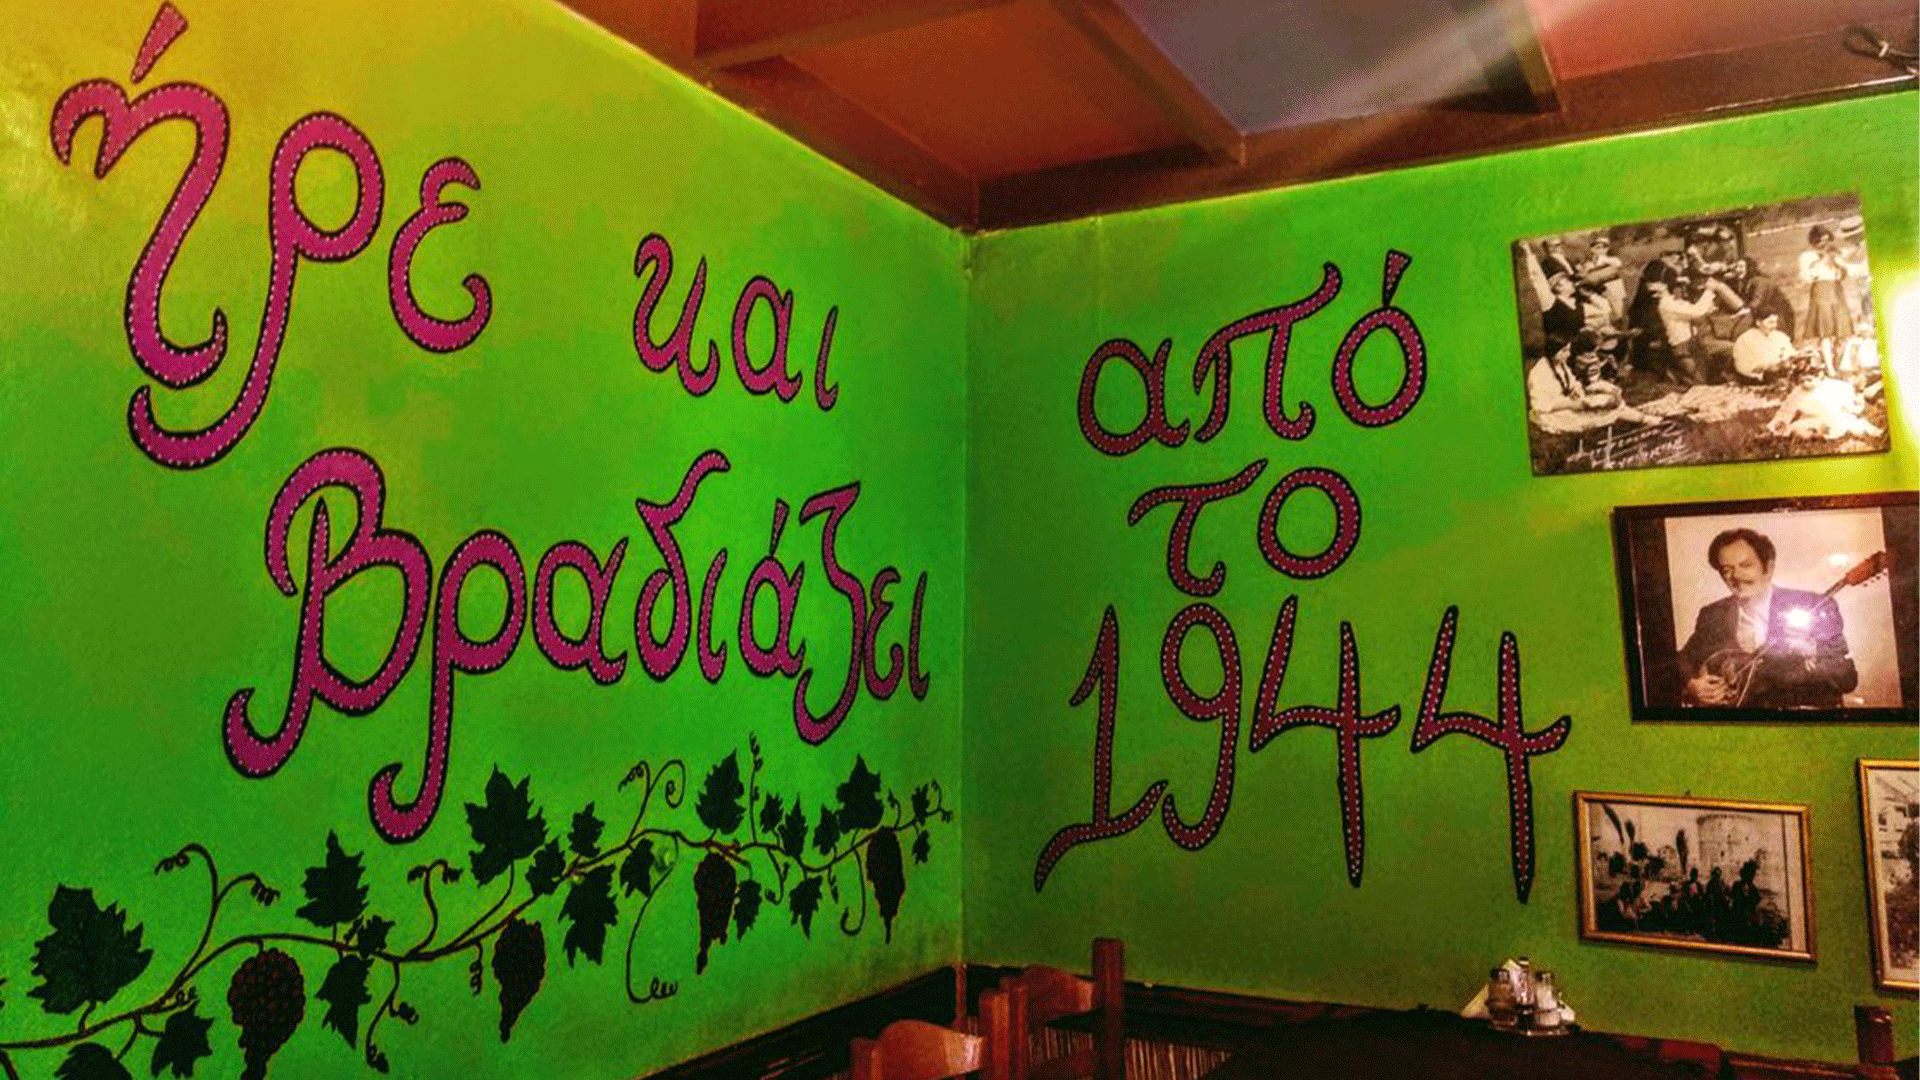 ήρε και
Βραδιάζει
από
το
1944